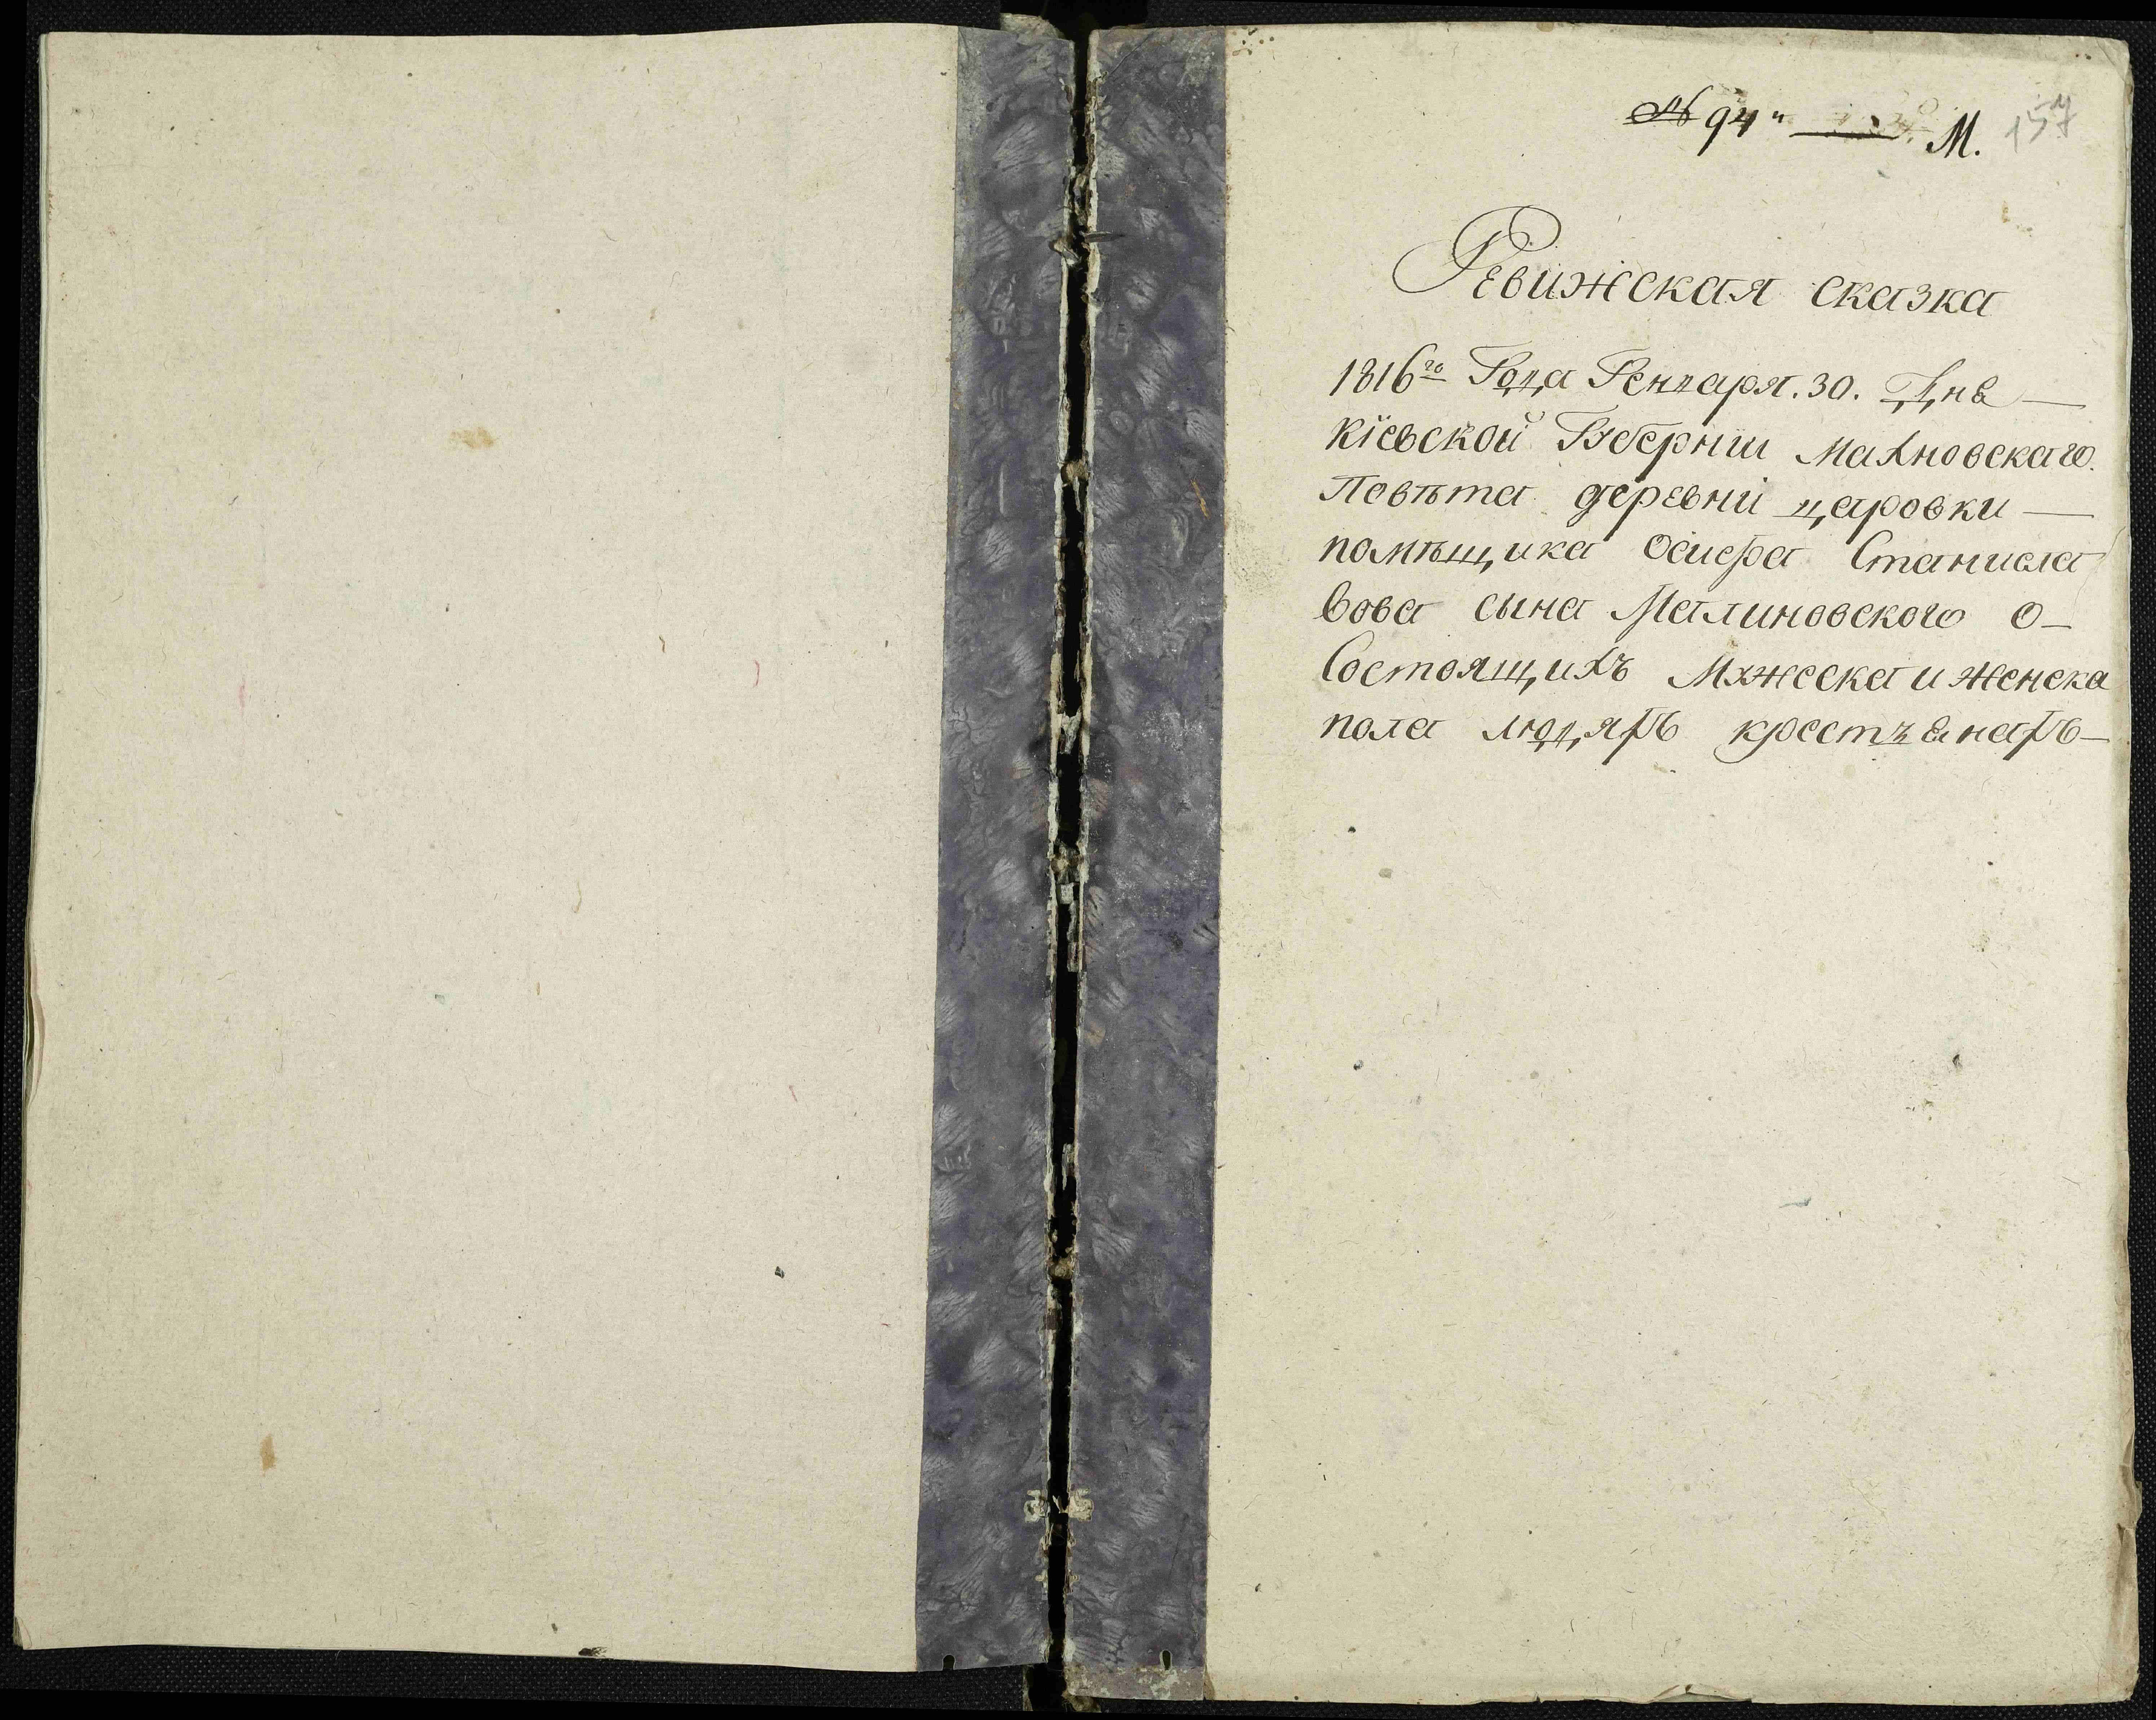 № 94 М. 157
Ревижская сказка
1816го Года Генъаря. 30. Дня
Кіевской Губерніи Махновскаго.
Повѣта деревни царовки
помѣщика Осиера Станисла
вова сына Малиновского о
Состоящихъ Мужеска и женска
пола людяхъ крестьянахъ